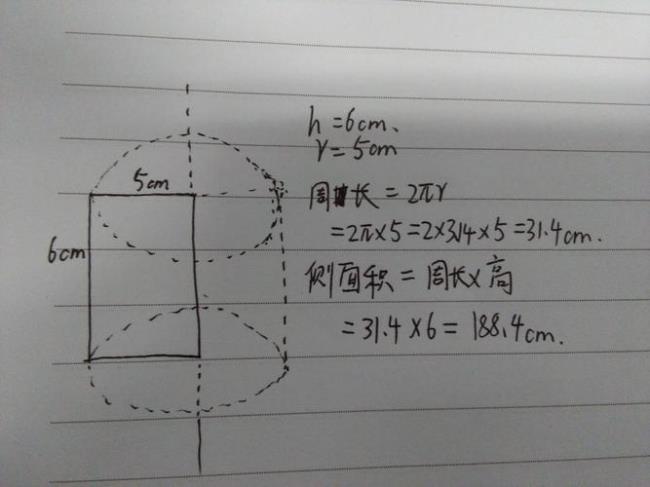 h=6cm、
r=5cm
5cm
6cm
周长=2πr
=2π×5=2×3.14×5=31.4cm.
侧面积=周长×高
=31.4×6=188.4cm.